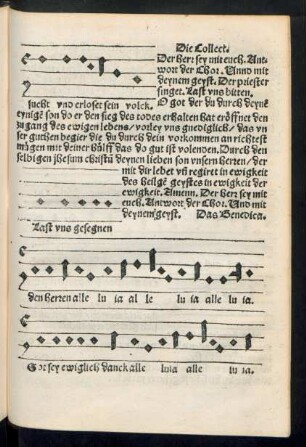 Die Collect.
Der herr sey mit euch. Ant-
wort der Chor. Vnnd mit
deynem geyst. Der priester
singet. Last vns bitten,
O got der du durch deynē
sucht vnd erloset sein volck.
eynigē son do er den sieg des todes erhalten hat eröffnet den
zu gang des ewigen lebens / vorley vns gnediglich / das vn
ser guthen begier die du durch dein vorkommen an richtest
mügen mit deiner hülff das do gut ist volenden. Durch den
selbigen jhesum christū deynen lieben son vnsern herren / der
mit dir lebet vñ regiret in ewigkeit
des heilgē geystes in ewigkeit der
ewigkeit. Amenn. Der herr sey mit
euch. Antwort der Chor. Vnd mit
deynem geyst. Das Benedica.
Last vns gesegnen
den herren alle lu ia al le lu ia alle lu ia.
Got sey ewiglich danck alle luia alle lu ia.